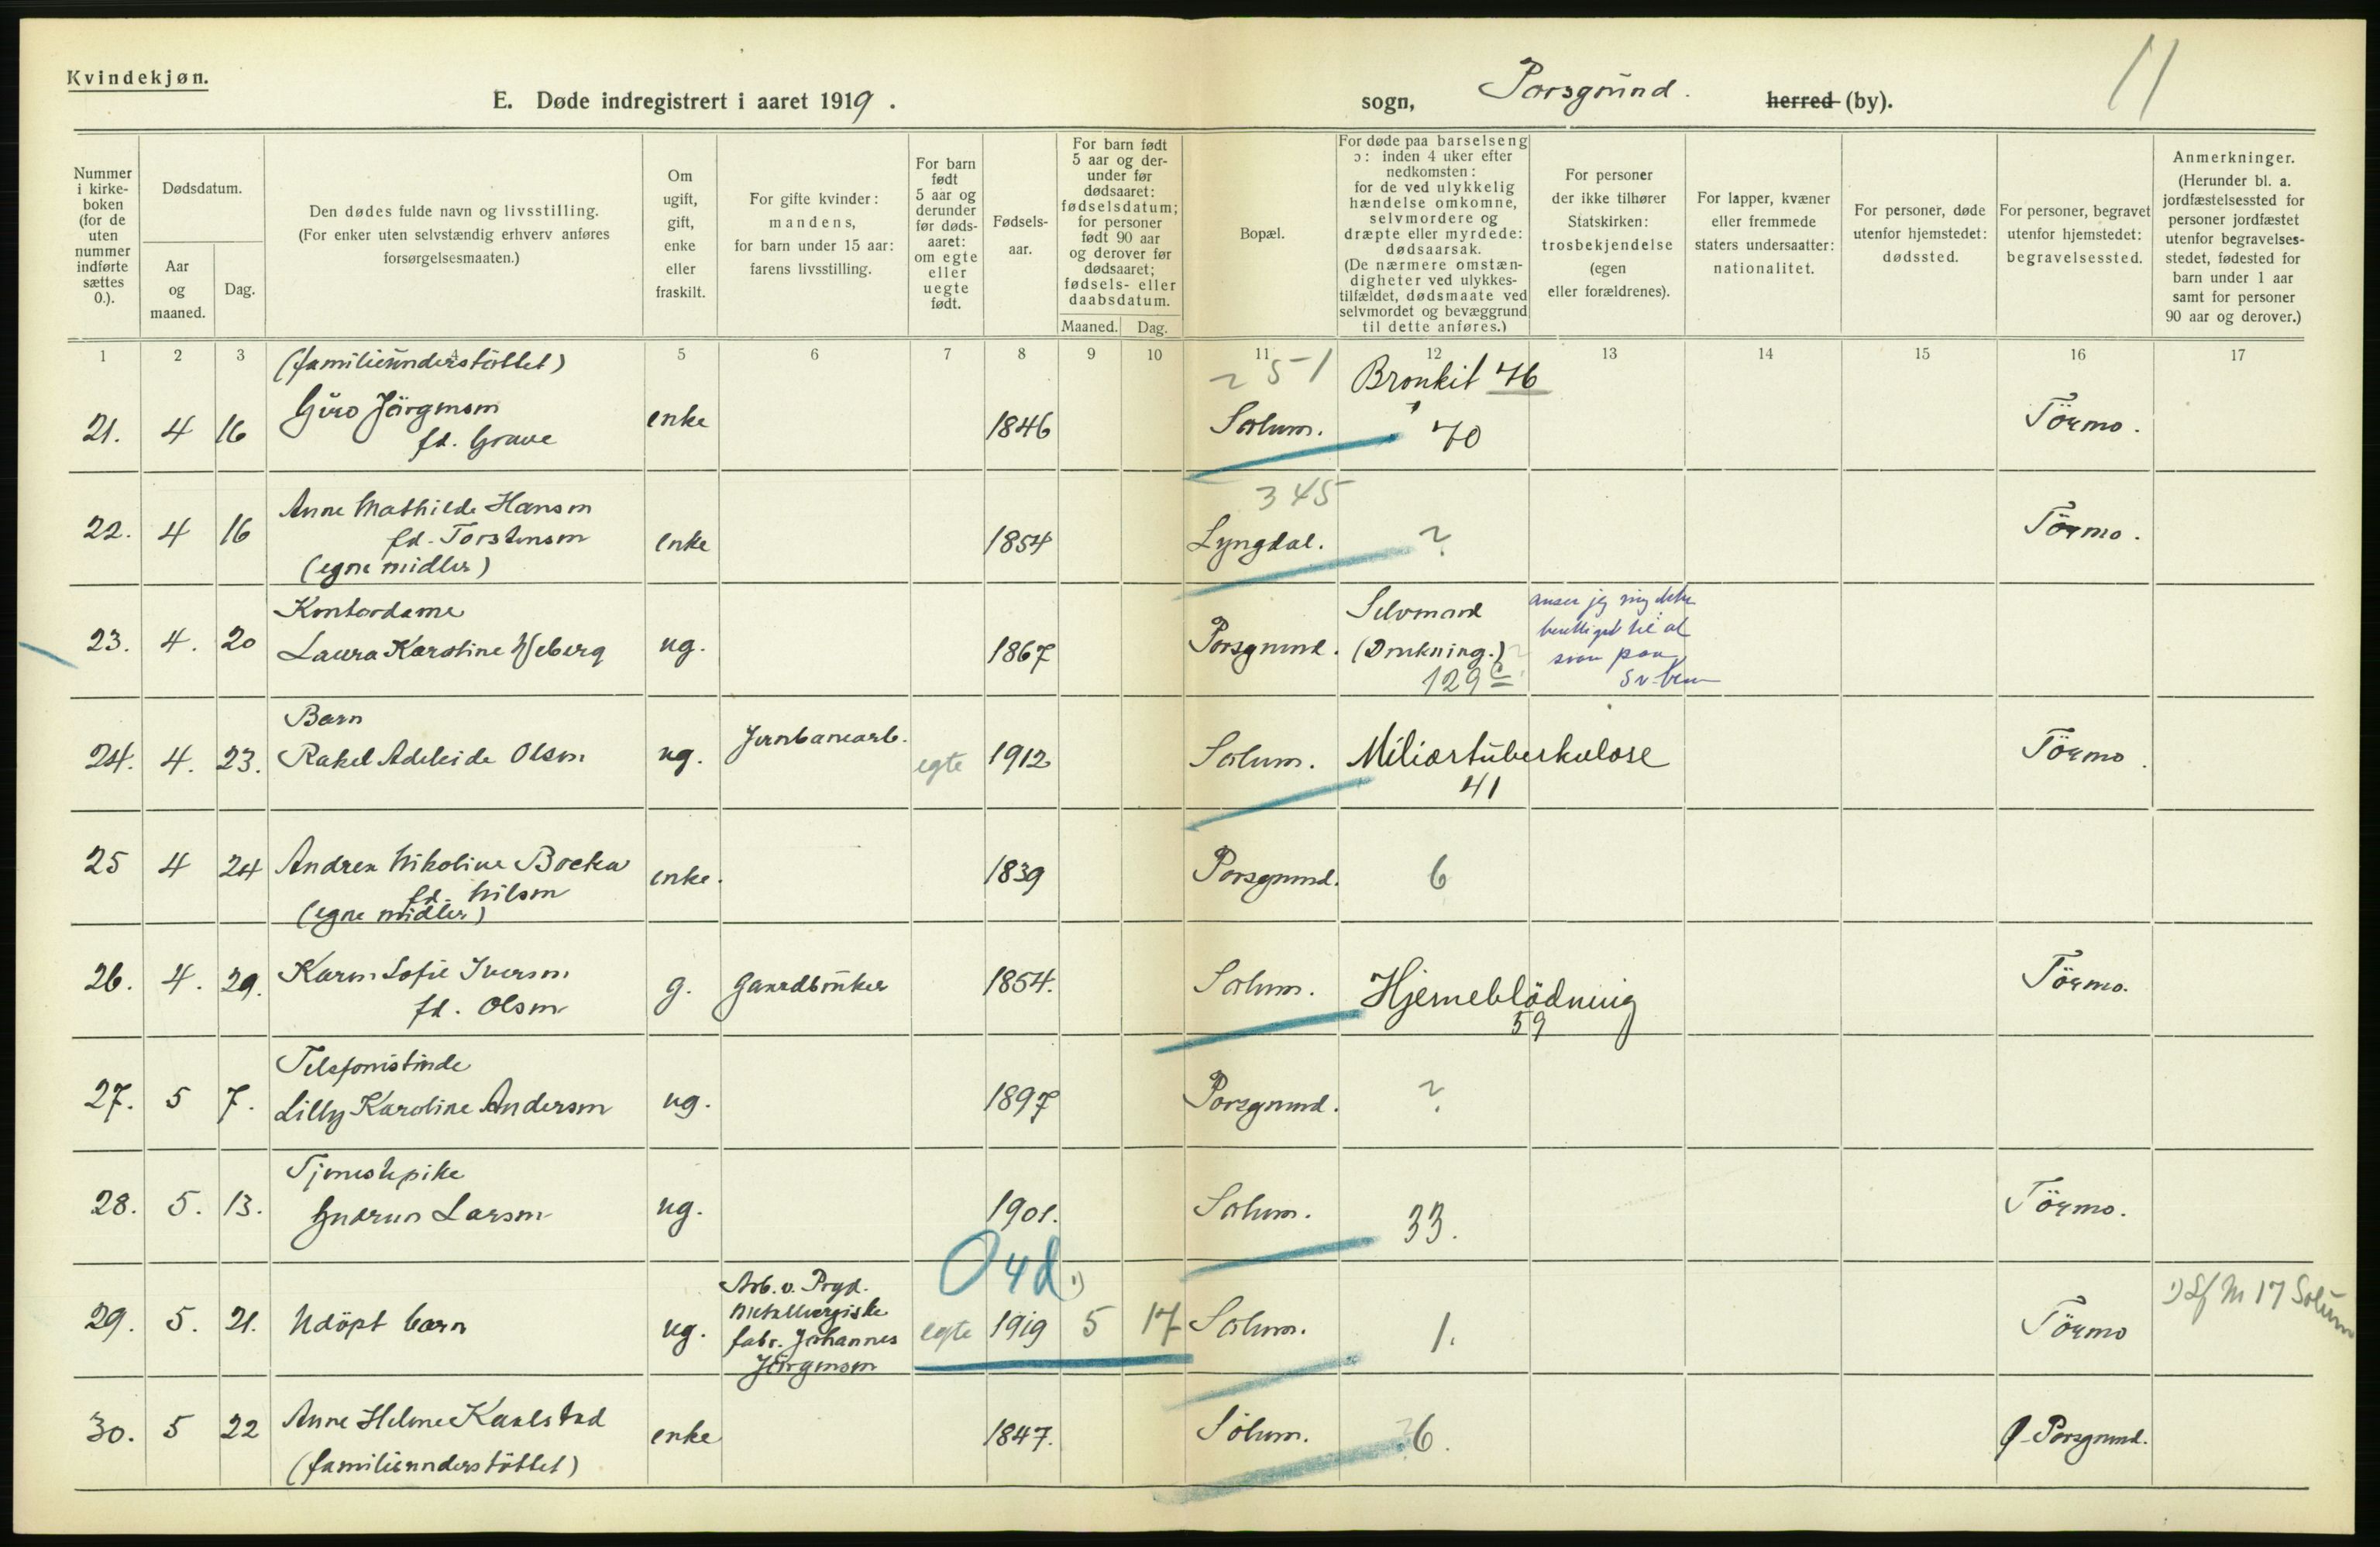 Kvindekjøn.
E. Døde indregistrert i aaret 1919.
sogn, Porsgrund. herred (by).
11
Nummer
i kirke-
boken
(for de
uten
nummer
indførte
sættes
0.).
Dødsdatum.
Aar
og
maaned.
Dag.
Den dødes fulde navn og livsstilling.
(For enker uten selvstændig erhverv anføres
forsørgelsesmaaten.)
Om
ugift,
gift,
enke
eller
fraskilt.
For gifte kvinder:
mandens,
for barn under 15 aar:
farens livsstilling.
For barn
født
5 aar og
derunder
før døds-
aaret:
om egte
eller
uegte
født.
Fødsels-
aar.
For barn født
5 aar og der-
under før
dødsaaret:
fødselsdatum;
for personer
født 90 aar
og derover før
dødsaaret;
fødsels- eller
daabsdatum.
Maaned. Dag.
Bopæl.
For døde paa barselseng
ɔ: inden 4 uker efter
nedkomsten:
for de ved ulykkelig
hændelse omkomne,
selvmordere og
dræpte eller myrdede:
dødsaarsak.
(De nærmere omstæn-
digheter ved ulykkes-
tilfældet, dødsmaate ved
selvmordet og bevæggrund
til dette anføres.)
For personer
der ikke tilhører
Statskirken:
trosbekjendelse
(egen
eller forældrenes).
For lapper, kvæner
eller fremmede
staters undersaatter:
nationalitet.
For personer, døde
utenfor hjemstedet:
dødssted.
For personer, begravet
utenfor hjemstedet:
begravelsessted.
Anmerkninger.
(Herunder bl. a.
jordfæstelsessted for
personer jordfæstet
utenfor begravelses-
stedet, fødested for
barn under 1 aar
samt for personer
90 aar og derover.)
1 2 3 4 5 6 7 8 9 10 11 12 13 14 15 16 17
(familieunderstöttet) 251 Bronkit 76
21. 4 16 Guro Jörgensen enke 1846 Solum. 70 Törmo.
fd. Grave
Anne Mathilde Hansen 345
22. 4 16 fd. Torstensen enke 1854 Lyngdal. ? Törmo.
(egne midler)
Kontordame Selvmord anser jeg mig ikke
23. 4. 20 Laura Karoline Weberg ug. 1867 Porsgrund. (Drukning.) berettiget til at
129
Barn
24. 4. 23. Rakel Adeleide Olsen ug. Jernbanearb. egte 1912 Solum. Miliærtuberkulose Törmo.
41
25 4 24 Andrea Nikoline enke. 1839 Porsgrund. 6
fd. Nilsen
(egne midler)
26. 4. 29. Karen Sofie Iversen g. Gaardbruker 1854. Solum. Hjerneblödning Törmo.
fd. Olsen 59
Telefonistinde
27. 5 7. Lilly Karoline Andersen ug. 1897 Porsgrund. ?
Tjenestepike
28. 5. 13. Gudrun Larsen ug. 1901. Solum. 33. Törmo.
Arb. v. Prgd. 04d 1)
29. 5. 21. Udöpt barn ug. metallurgiske egte 1919 5 17 Solum. 1. Törmo 1) M 17 Solum
fabr. Johannes
Jörgensen
30. 5 22 Anne Helene Karlstad enke 1847. Solum. 6. Ø-Porsgrund.
(familieunderstöttet)